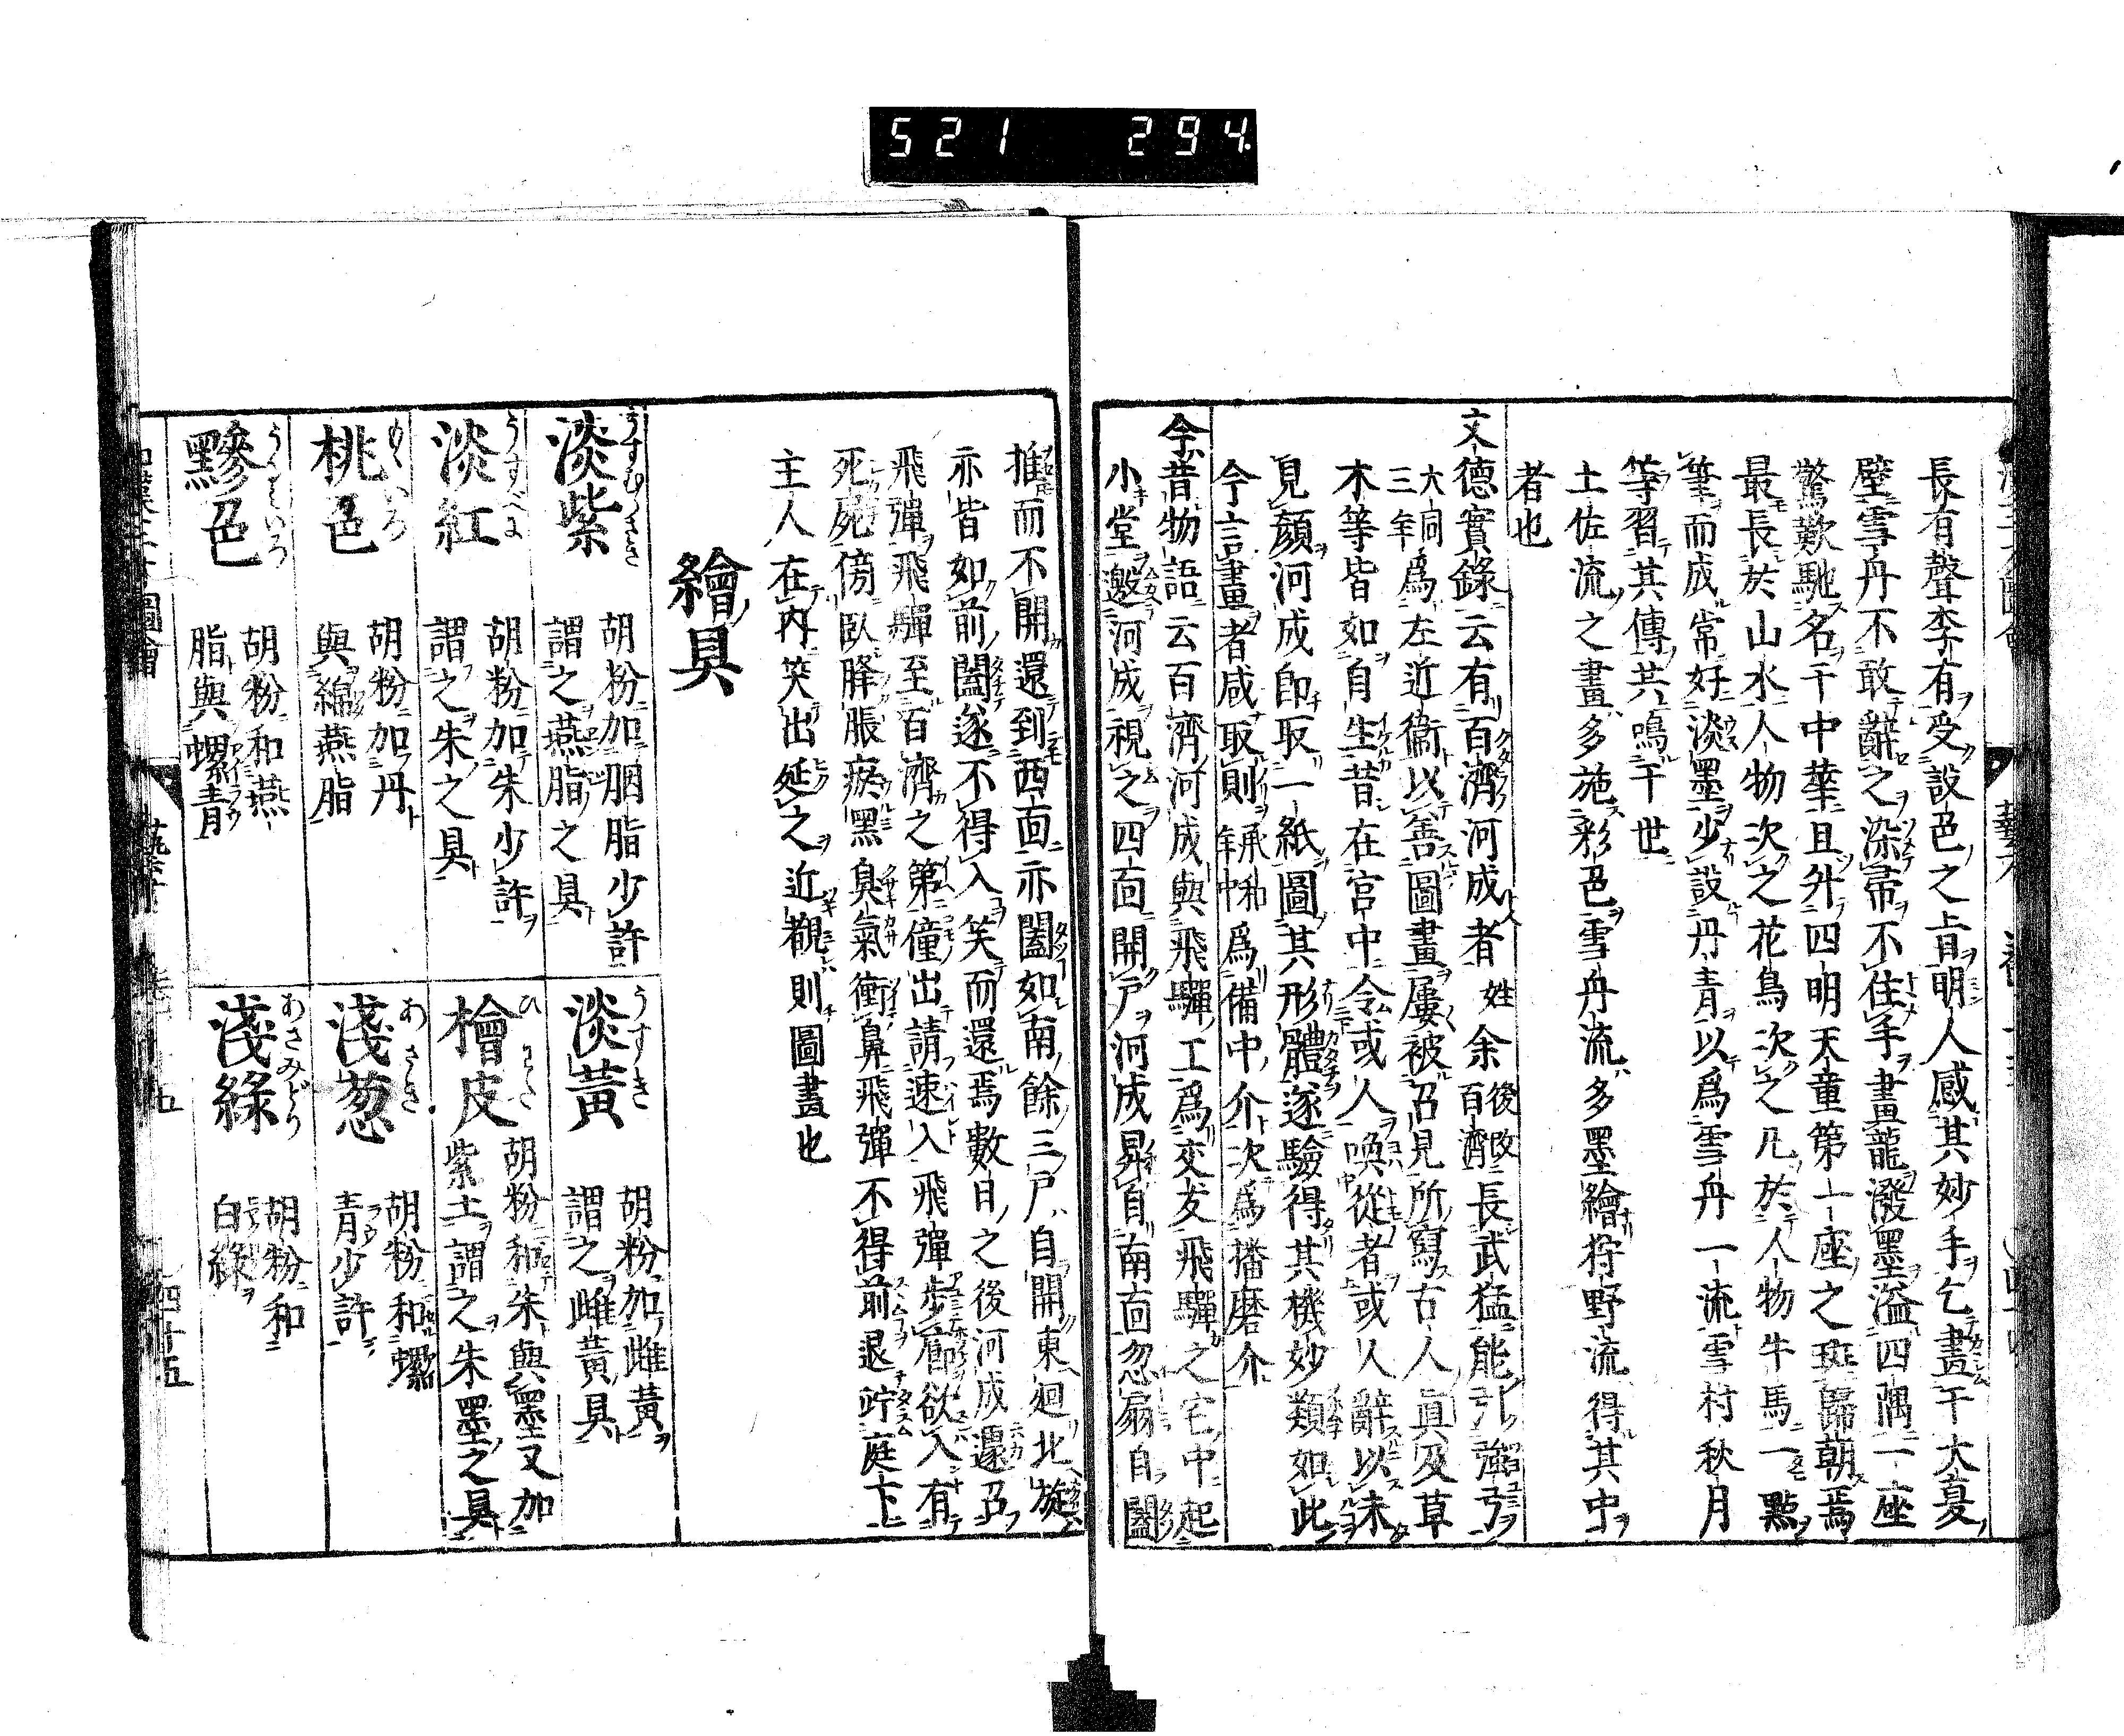 521 294
長有聲李有受設色之㫖明人感其妙手乞畫于大夏
壁雪舟不敢辭之染帚不住手畫龍潑墨溢四隅一座
驚歎馳名于中華且列四明天童第一座之班歸朝焉
最長於山水人物次之花鳥次之凡於人物牛馬一點
筆而成常好淡墨少設丹青以爲雪舟一流雪村秋月
等習其傳共鳴于世
土佐流之畫多施彩色雪舟流多墨繪狩野流得其中
者也
文德實錄云有百濟河成者姓余後改百濟長武猛能引強弓
大同三年爲左近衞以善圖畫屢被召見所寫古人眞及草
木等皆如自生昔在宮中令或人喚從者或人辭以未
見顏河成卽取一紙圖其形體遂驗得其機妙類如此
今言畫者咸取則承和年中爲備中介次爲播磨介
今昔物語云百濟河成與飛驒工爲交友飛驒之宅中起
小堂邀河成視之四面開戸河成昇自南面忽扇自闔
推而不開還到西面亦闔如南餘三戸自開東廻北旋
亦皆如前闔遂不得入笑而還焉數日之後河成還召
飛彈飛驒至百濟之第僮出請速入飛彈步廊欲入有
死屍傍臥脹脹瘀黑臭氣衝鼻飛彈不得前退貯庭下
主人在內笑出延之近覩則圖畫也
繪具
淡紫 うすむらさき 胡粉加胭脂少許謂之燕脂之具
淡黃 うすき 胡粉加雌黃謂之雌黃具
淡紅 うすべに 胡粉加朱少許謂之朱之具
檜皮 ひわた 胡粉和朱與墨又加紫土謂之朱墨之具
桃色 もゝいろ 胡粉加丹與綿燕脂
淺葱 あさき 胡粉和螺青少許
黲色 胡粉和燕脂與螺青
淺綠 あさみどり 胡粉和白綠